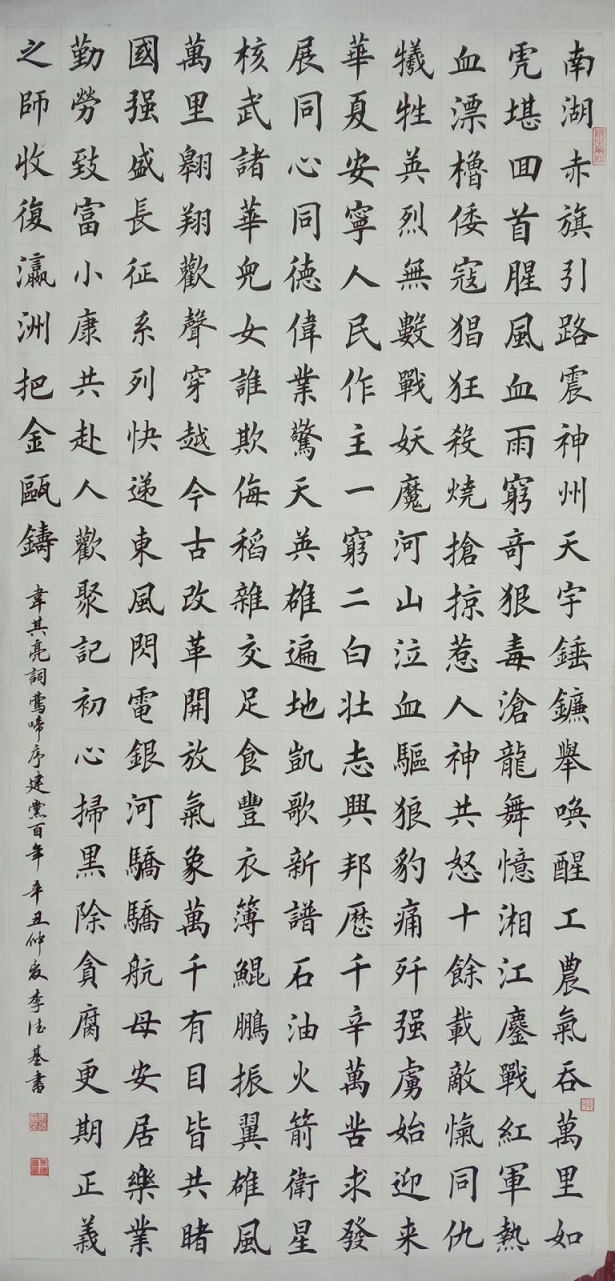 南湖赤旗引路震神州天宇錘鐮舉喚醒工農氣吞萬里如
虎堪回首腥風血雨窮奇狠毒滄龍舞憶湘江鏖戰紅軍熱
血漂櫓倭寇猖狂殺燒搶掠惹人神共怒十餘載敵愾同仇
犧牲英烈無數戰妖魔河山泣血驅狼豹痛歼强虜始迎来
華夏安寧人民作主一窮二白壯志興邦歷千辛萬苦求發
展同心同德偉業驚天英雄遍地凱歌新譜石油火箭衛星
核武諸華兒女誰欺侮稻雜交足食豐衣簿鯤鵬振翼雄風
萬里翱翔歡聲穿越今古改革開放氣象萬千有目皆共睹
國强盛長征系列快递東風閃電銀河驕驕航母安居樂業
勤勞致富小康共赴人歡聚記初心掃黑除貪腐更期正義
之師收復瀛洲把金甌鑄
韋其亮詞鶯啼序建黨百年 辛丑仲夏李德基書